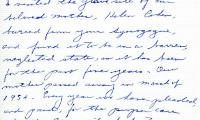 I visited the grave site of our
beloved mother, Helen Cohn,
buried from your Synagogue,
and found it to be in a barren,
neglected state, as it has been
for the past four years. Our
mother passed away in March of
1954. Every year we have pleaded,
and paid, for the proper care